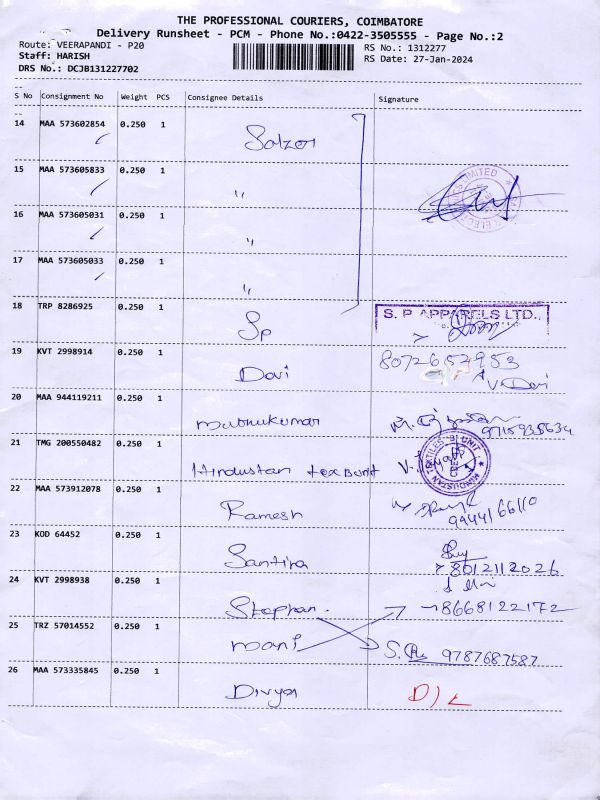 THE PROFESSIONAL COURIERS, COIMBATORE
Delivery Runsheet - PCM - Phone No.:0422-3505555 - Page No.:2
Route: VEERAPANDI - P20
RS No.: 1312277
Staff: HARISH
RS Date: 27-Jan-2024
DRS No.: DCJB131227702
S No Consignment No Weight PCS Consignee Details Signature
14 MAA 573602854 0.250 1 Salzer
15 MAA 573605833 0.250 1 "
16 MAA 573605031 0.250 1 "
17 MAA 573605033 0.250 1 "
18 TRP 8286925 0.250 1 Sp S. P. APPARELS LTD.,
19 KVT 2998914 0.250 1 Davi 8072652953
V. Devi
20 MAA 944119211 0.250 1 Muthukumar 9715935634
21 TMG 200550482 0.250 1 Hindustan tex HINDUSTAN TEXTILES 'B' UNIT
22 MAA 573912078 0.250 1 Ramesh
9444166110
23 KOD 64452 0.250 1 Santira
8012112026
24 KVT 2998938 0.250 1 Stephan. 8668122172
25 TRZ 57014552 0.250 1 mani S. 9787687587
26 MAA 573335845 0.250 1 Divya D/L